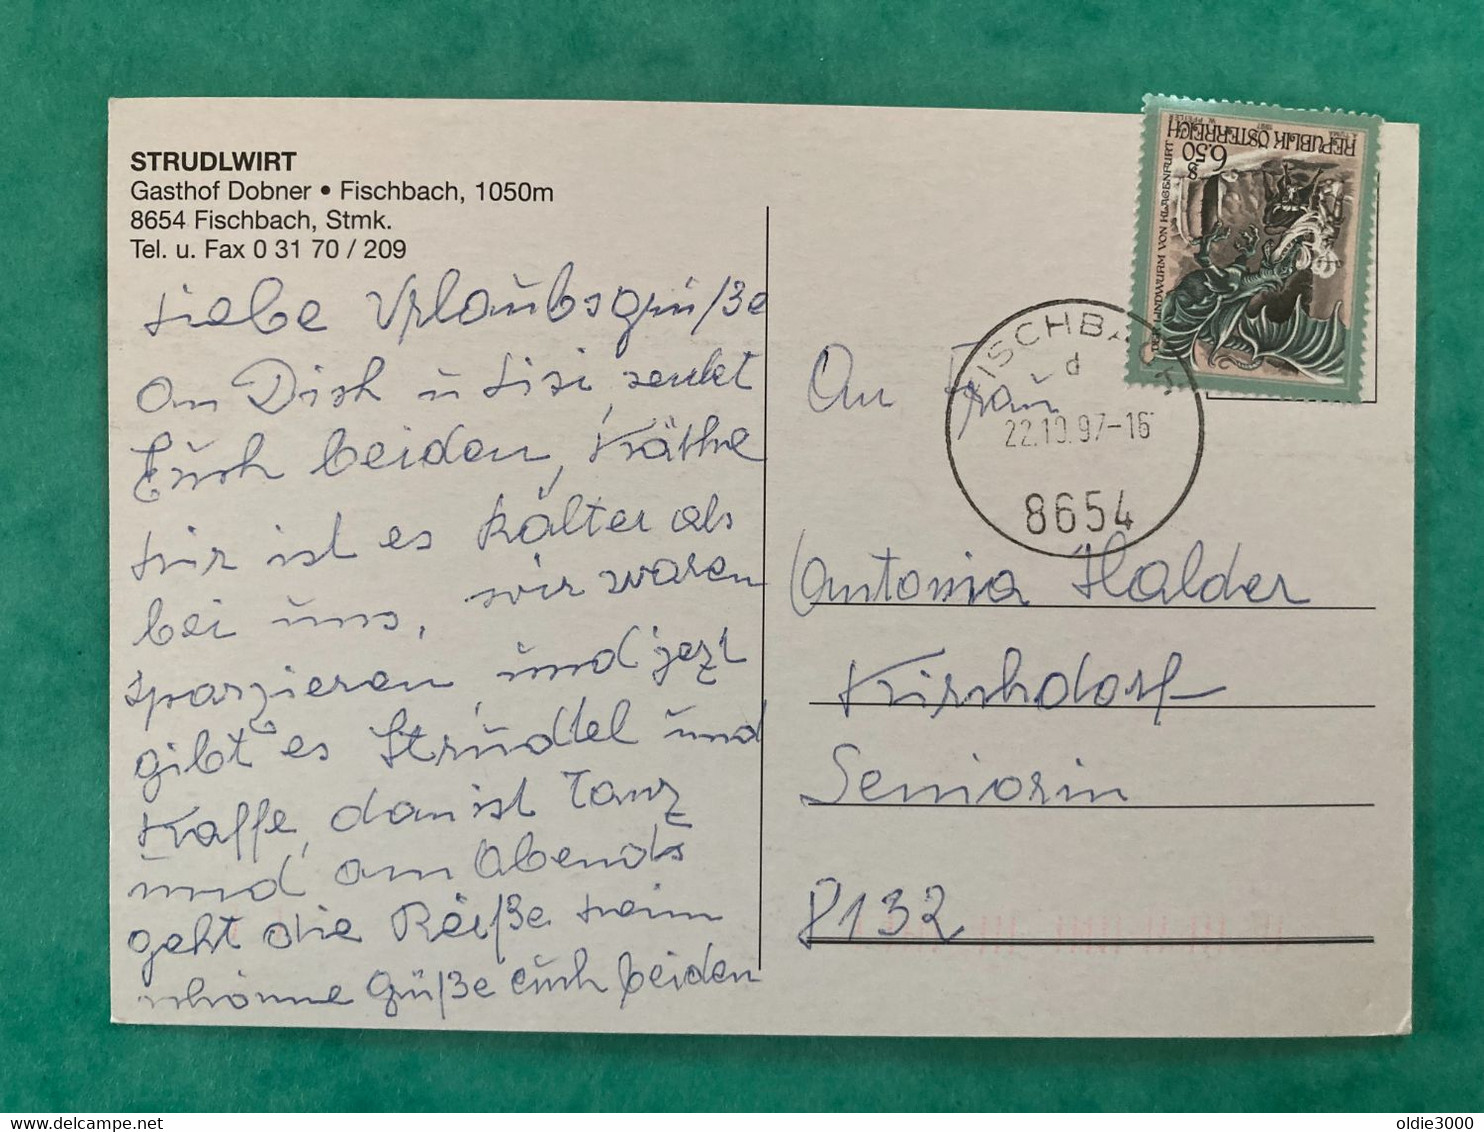 STRUDLWIRT
Gasthof Dobner • Fischbach, 1050m
8654 Fischbach, Stmk.
Tel. u. Fax 0 31 70 / 209
Liebe Urlaubsgrüße
an Dich u Lisi, senkt
Euch beiden, Käthe
hir ist es kälter als
bei uns, wir waren
sparzieren, und jezt
gibt es Strudtel und
Kaffe, dan ist Tanz
und am Abends
geht die Reiße heim
schönne Güße euch beiden
REPUBLIK ÖSTERREICH
6.50 S
DER LINDWURM VON KLAGENFURT
A. TUMA 1997 W. PFEILER
FISCHBACH
d
22.10.97-16
8654
An Frau
Antonia Halder
Kirchdorf
Seniorin
P132
oldie3000